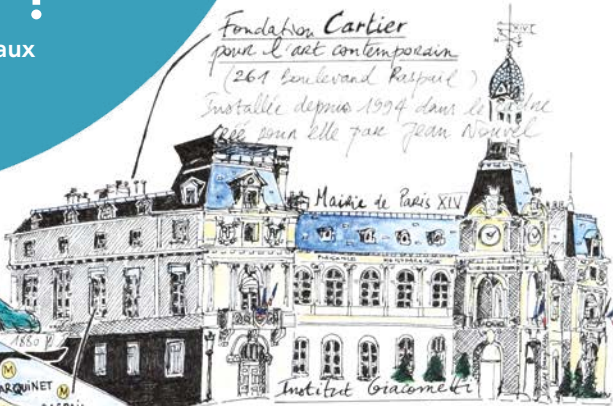 !
aux
Fondation Cartier
pour l'art contemporain
(261 Boulevard Raspail)
Installée depuis 1994 dans le
créé pour elle par Jean Nouvel
Mairie de Paris XIV
Institut Giacometti
1880
M
M